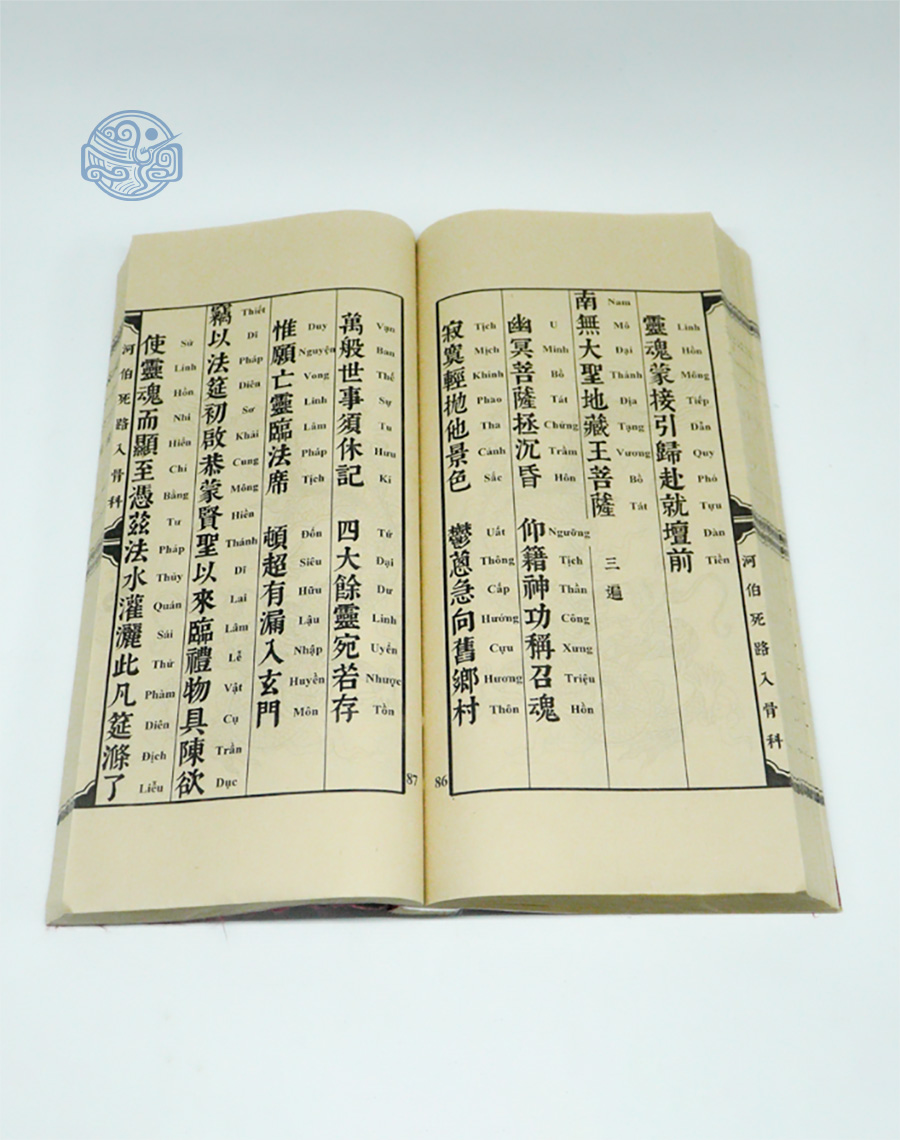 河伯死路入骨科
靈魂蒙接引歸赴就壇前
Linh Hồn Mông Tiếp Dẫn Quy Phó Tựu Đàn Tiền
南無大聖地藏王菩薩 三遍
Nam Mô Đại Thánh Địa Tạng Vương Bồ Tát
幽冥菩薩拯沉昏 仰籍神功稱召魂
U Minh Bồ Tát Chứng Trầm Hôn Ngưỡng Tịch Thần Công Xưng Triệu Hồn
寂寞輕抛他景色 鬱蔥急向舊鄉村
Tịch Mịch Khinh Phao Tha Cảnh Sắc Uất Thông Cấp Hướng Cựu Hương Thôn
86
87
萬般世事須休記 四大餘靈宛若存
Vạn Ban Thế Sự Tu Hưu Kí Tứ Đại Dư Linh Uyển Nhược Tồn
惟願亡靈臨法席 頓超有漏入玄門
Duy Nguyện Vong Linh Lâm Pháp Tịch Đốn Siêu Hữu Lậu Nhập Huyền Môn
竊以法筵初啟恭蒙賢聖以來臨禮物具陳欲
Thiết Dĩ Pháp Diên Sơ Khải Cung Mông Hiền Thánh Dĩ Lai Lâm Lễ Vật Cụ Trần Dục
使靈魂而顯至憑茲法水灌灑此凡筵滌了
Sử Linh Hồn Nhi Hiển Chí Bằng Tư Pháp Thủy Quán Sái Thử Phàm Diên Địch Liễu
河伯死路入骨科